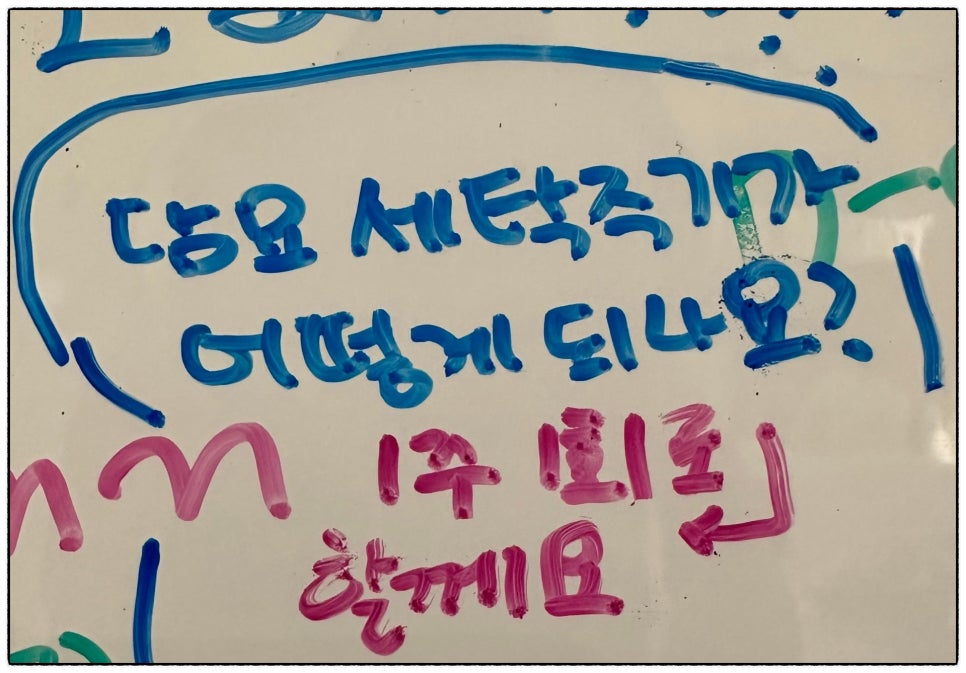 담요 세탁주기가
어떻게 되나요?
1주 1회로
할께요